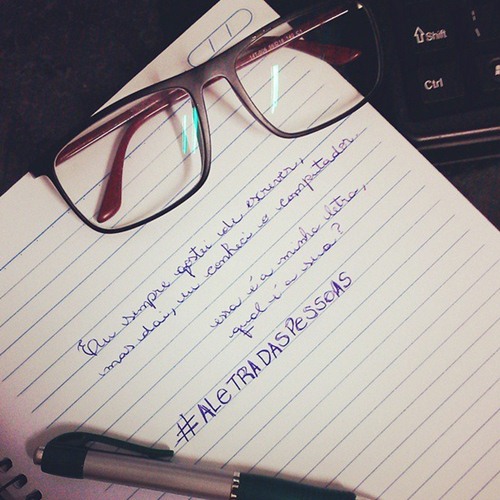 11
Eu sempre gostei de escrever,
mas daí, eu conheci o computador
essa é a minha letra,
qual é a sua?
#ALETRADASPESSOAS
Shift
Ctrl